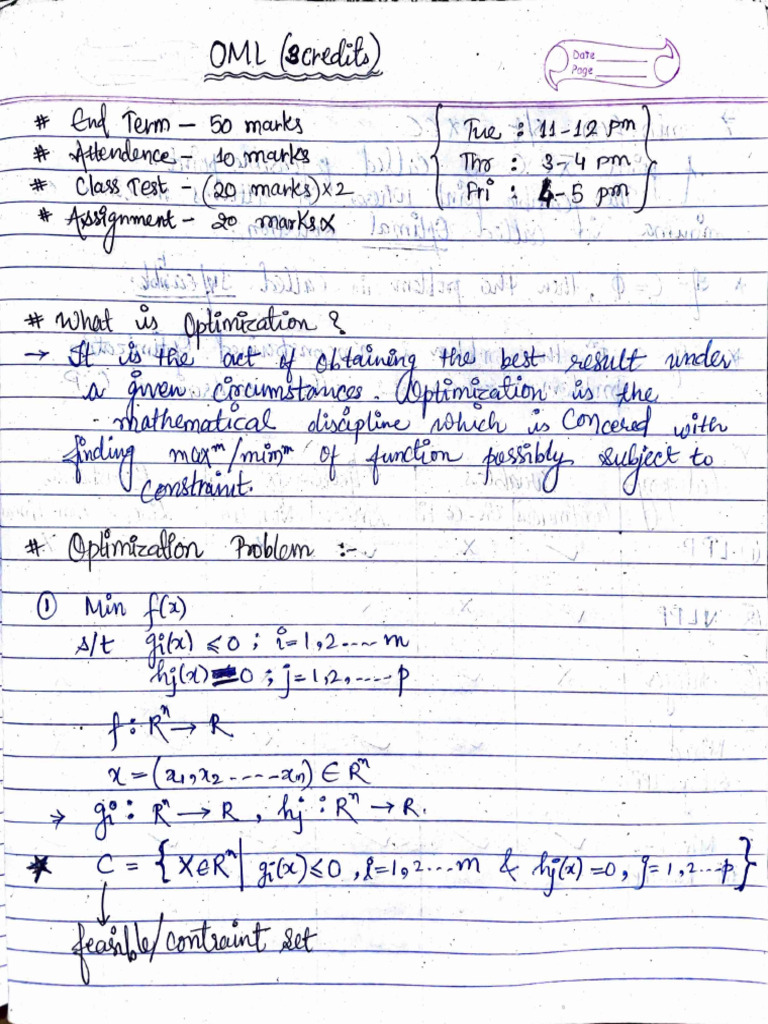 OML (3credits)
Date
Page
# End Term – 50 marks
# Attendence – 10 marks
# Class Test – (20 marks)×2
# Assignment – 20 marks
Tue : 11–12 pm
Thr : 3–4 pm
Fri : 4–5 pm
# What is Optimization ?
→ It is the act of obtaining the best result under
a given circumstances. Optimization is the
mathematical discipline which is concered with
finding maxᵐ/minᵐ of function possibly subject to
constraint.
# Optimization Problem :-
① Min f(x)
s/t gi(x) ≤ 0 ; i=1,2.....m
hj(x) = 0 ; j=1,2,.....p
f : Rⁿ → R
x = (x₁,x₂ ......xₙ) ∈ Rⁿ
→ gi : Rⁿ → R , hj : Rⁿ → R.
* C = { X∈Rⁿ | gi(x)≤0 , i=1,2...m & hj(x)=0, j=1,2...p}
↓
feasible/contraint set